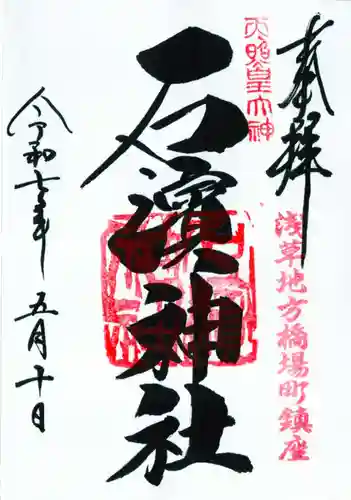 奉拝
天照皇大神
浅草地方橋場町鎮座
石濱神社
令和七年
五月十日